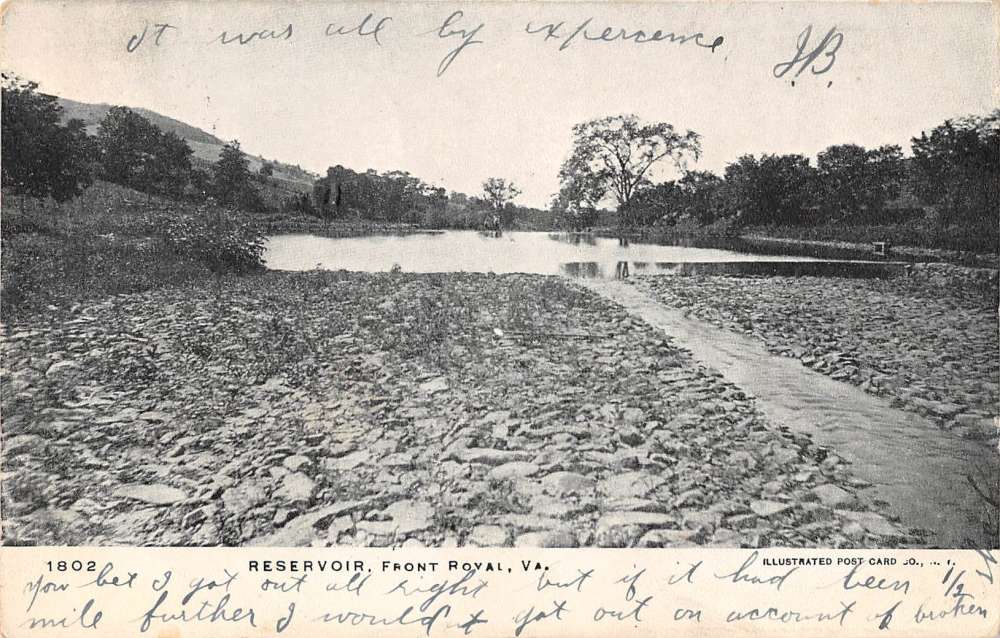 It was all by experence J.B.
1802 RESERVOIR, FRONT ROYAL, VA. ILLUSTRATED POST CARD CO., N. Y.
you bet I got out all right but if it had been 1/2
mile further I would got out on account of broken